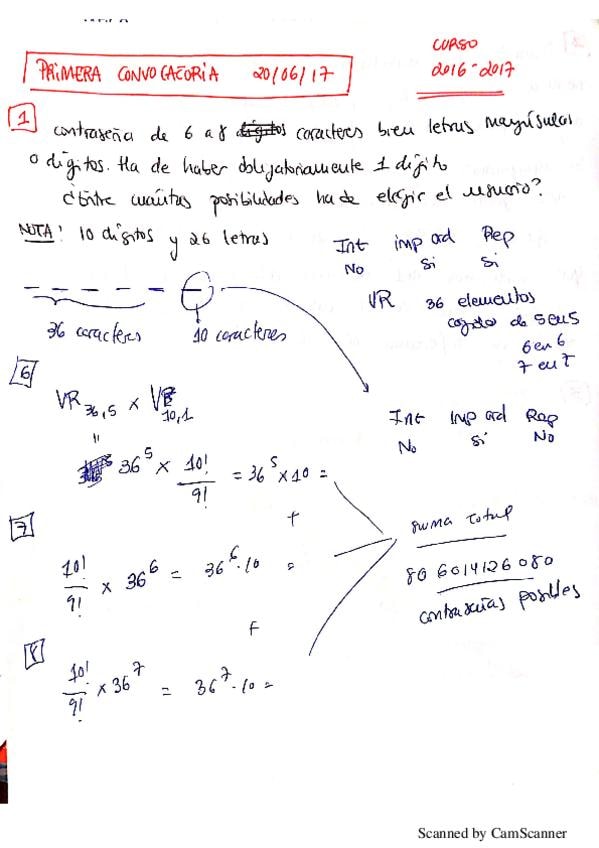 PRIMERA CONVOCATORIA 20/06/17
CURSO
2016-2017
1 contraseña de 6 a 8 dígitos caracteres bien letras mayúsculas
o dígitos. Ha de haber obligatoriamente 1 dígito
¿Entre cuántas posibilidades ha de elegir el usuario?
NOTA: 10 dígitos y 26 letras
Int imp ord Rep
No Si Si
VR 36 elementos
cogidos de 5 en 5
6 en 6
7 en 7
36 caracteres 10 caracteres
6
VR36,5 × V10,1
Int imp ord Rep
No Si No
"
36^5 × 10!/9! = 36^5 × 10 =
+
7
10!/9! × 36^6 = 36^6 · 10 =
suma total
806014126080
contraseñas posibles
+
8
10!/9! × 36^7 = 36^7 · 10 =
Scanned by CamScanner